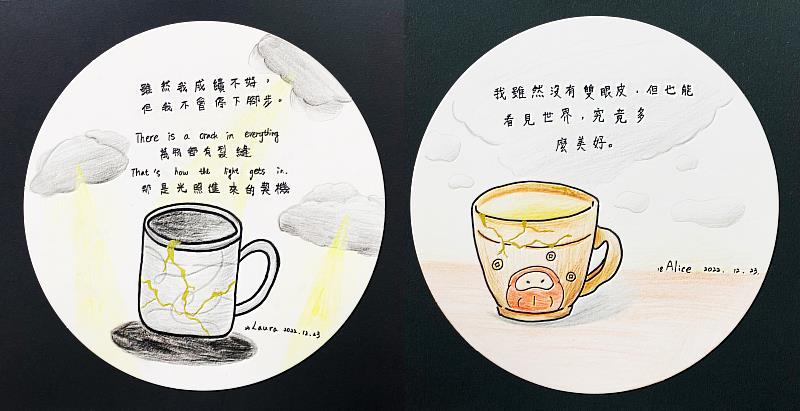 雖然我成績不好，
但我不會停下腳步。
There is a crack in everything
萬物都有裂縫
That's how the light gets in.
那是光照進來的契機
Laura 2022.12.23
我雖然沒有雙眼皮．但也能
看見世界，究竟多
麼美好。
18 Alice 2022.12.23.